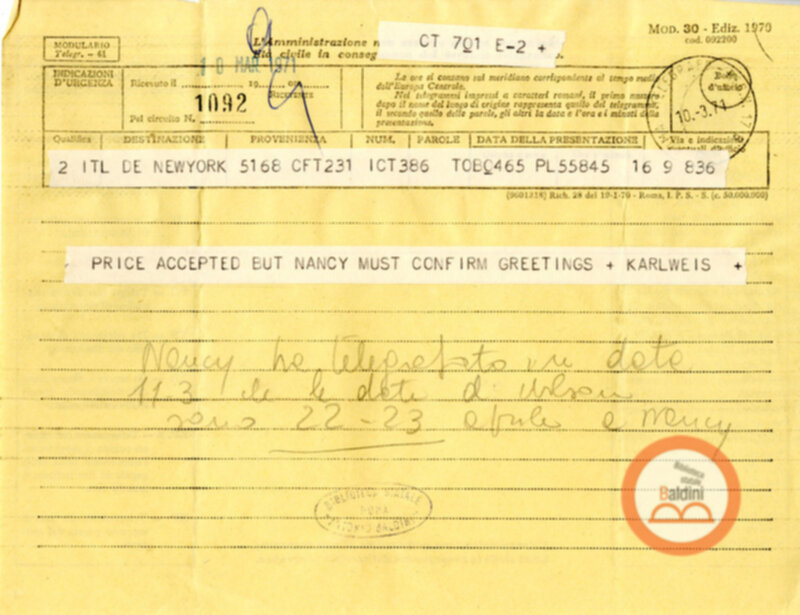 MODULARIO
Telegr. - 61
L'Amministrazione n
civile in conseg
CT 701 E-2 +
MOD. 30 - Ediz. 1970
cod. 002200
10 MAR 1971
INDICAZIONI
D'URGENZA
Ricevuto il 19 ore
1092
Pel circuito N.
RICEVENTE
Le ore si contano sul meridiano corrispondente al tempo medio
dell'Europa Centrale.
Nei telegrammi impressi a caratteri romani, il primo numero
dopo il nome del luogo di origine rappresenta quello del telegramma,
il secondo quello delle parole, gli altri la data e l'ora e i minuti della
presentazione.
Bollo
d'ufficio
10.-3.71
Qualifica DESTINAZIONE PROVENIENZA NUM. PAROLE DATA DELLA PRESENTAZIONE Via e indicazioni
2 ITL DE NEWYORK 5168 CFT231 ICT386 TOBQ465 PL55845 16 9 836
(9601218) Rich. 28 del 19-1-70 - Roma, I. P. S. - S. (c. 50.000.000)
PRICE ACCEPTED BUT NANCY MUST CONFIRM GREETINGS + KARLWEIS +
Nancy ha telegrafato in data
11.3 che le date di Wilson
sono 22-23 aprile a Nancy
BIBLIOTECA STATALE
ROMA
ANTONIO BALDINI
Biblioteca
statale
Baldini